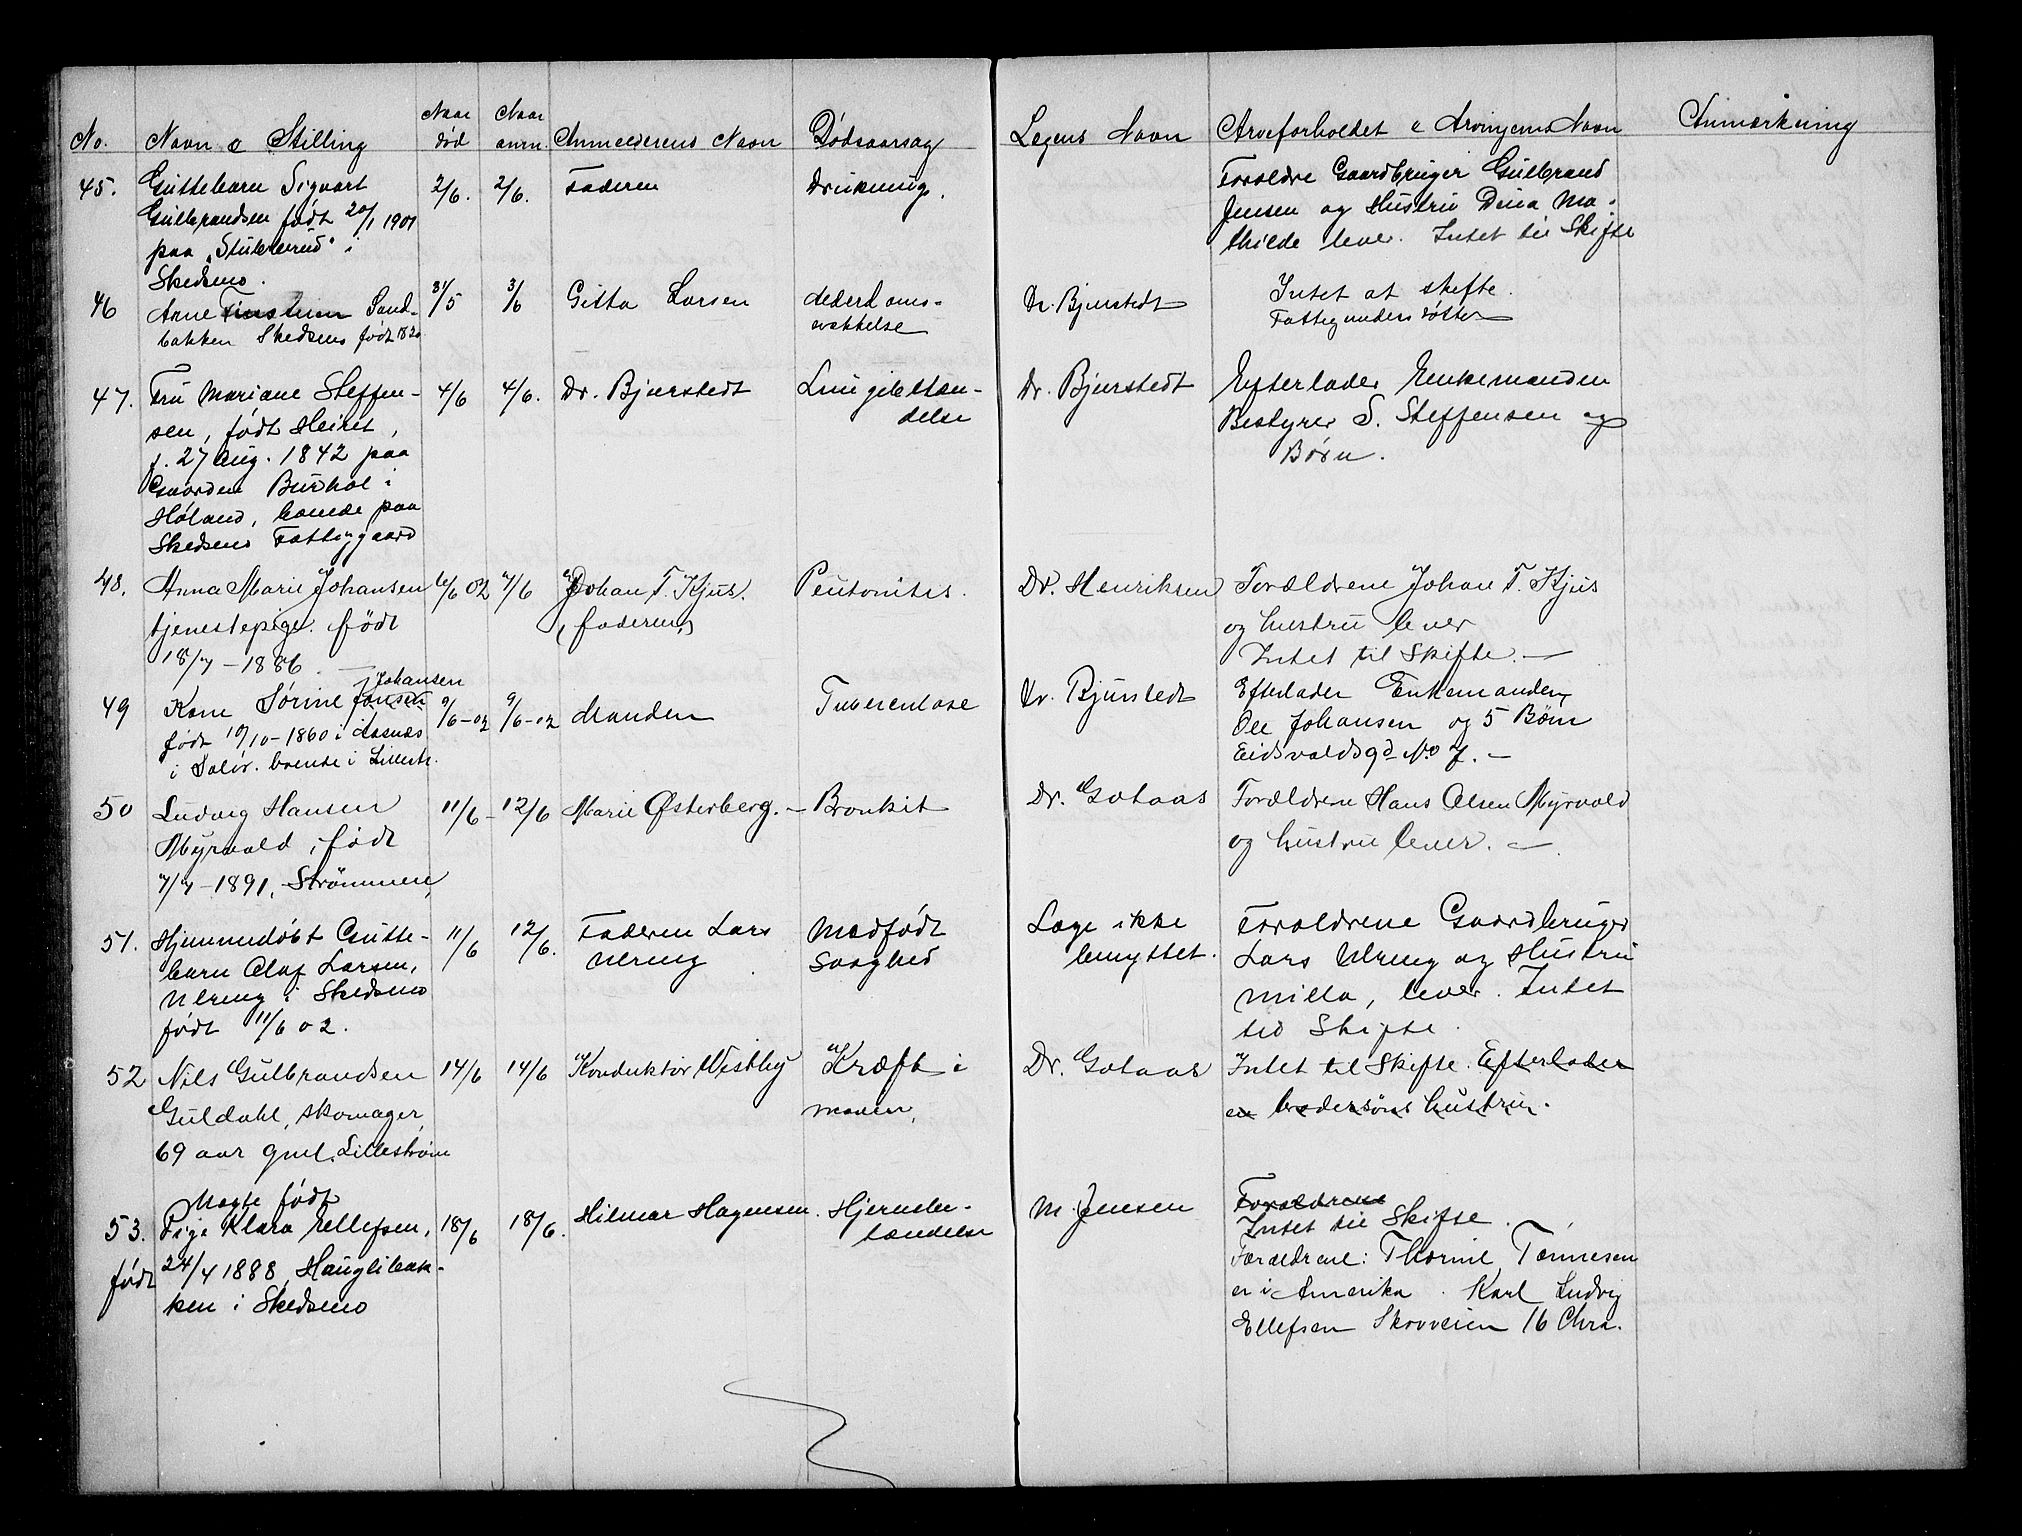 No. Navn & Stilling Naar død Naar anm Anmelderens Navn Dødsaarsag Legens Navn Arveforholdet & Arvingernes Navn Anmerkning
45. Guttebarn Sigvart 2/6. 2/6. Faderen Drukning. Forældre Gaardbruger Gulbrand
Gulbrandsen født 20/1 1901 Jensen og Hustru Dina Ma-
paa „Stubberud" i thilde lever. Intet til Skifte
Skedsmo.
46 Arne Sand- 31/5 3/6 Gitta Larsen Alderdoms- Dr. Bjurstedt Intet at skifte.
bakken Skedsmo født 1820 svækkelse Fattigunderstøttet
47. Fru Mariane Steffen- 4/6 4/6. Dr. Bjurstedt Lungebetæn- Dr. Bjurstedt Efterlader Enkemanden
sen, født Heiret, delse Bestyrer S. Steffensen og
f. 27 Aug. 1842 paa Børn.
Gaarden Burhol i
Høland, boende paa
Skedsmo Fattiggaard
48. Anna Marie Johansen 6/6 02 7/6 Johan T. Kjus. Peritonitis. Dr. Henriksen Forældrene Johan T. Kjus
tjenestepige. født (faderen) og hustru lever
18/7 – 1886. Intet til Skifte. —
Johansen
49 Kone Sørine Jonsen 9/6-02 9/6-02 Manden Tuberculose Dr. Bjurstedt Efterlader Enkemanden
født 10/10-1860 i Aasnæs Ole Johansen og 5 Børn
i Solør. boende i Lillestr. Eidsvoldsgd No 7. —
50 Ludvig Hansen 11/6 – 12/6 Marie Østerberg. – Bronkit Dr. Gotaas Forældrene Hans Olsen Myrvold
Myrvold, født og hustru lever. —
7/7 – 1891, Strømmen,
51. Hjemmedøbt Gutte- 11/6 12/6. Faderen Lars Medfødt Læge ikke Forældrene Gaardbruger
barn Olaf Larsen, Ulreng Svaghed benyttet. Lars Ulreng og Hustru
Ulreng i Skedsmo Milla, lever. Intet
født 11/6 02. til Skifte.
52 Nils Gulbrandsen 14/6 14/6 Konduktør Westby Kræft i Dr. Gotaas Intet til Skifte. Efterlader
Guldahl, skomager, maven, en brodersøns hustru.
69 aar gml. Lillestrøm
født Forældrene
53. Pige Klara Ellefsen, 18/6 18/6. Hilmar Hagensen. Hjernebe- M. Jensen Intet til Skifte.
født 24/4 1888, Hauglibak- tændelse Forældrene: Thorine Tønnesen
ken i Skedsmo er i Amerika. Karl Ludvig
Ellefsen Skovveien 16 Chra.